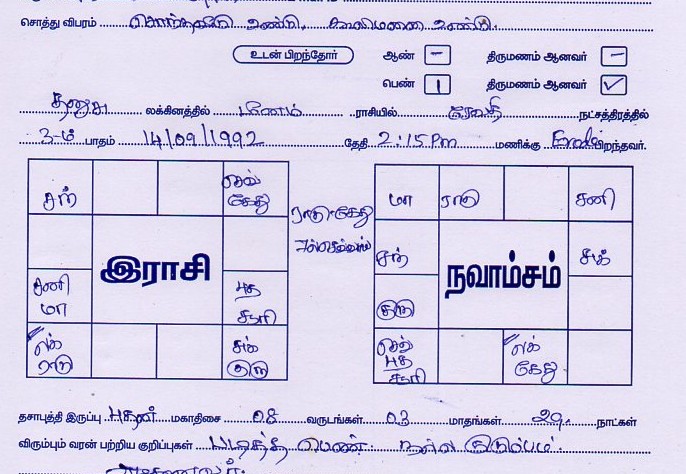 சொத்து விபரம் சொந்தவீடு உண்டு, காலிமனை உண்டு.
உடன் பிறந்தோர் ஆண் – திருமணம் ஆனவர் –
பெண் 1 திருமணம் ஆனவர் ✓
தனுசு லக்கினத்தில் மீனம் ராசியில் ரேவதி நட்சத்திரத்தில்
3-ம் பாதம் 14/09/1992 தேதி 2:15 Pm மணிக்கு Erode பிறந்தவர்.
சந் செவ் கேது
ராகு-கேது
இராசி
சனி மா புத சூரி
லக் ராகு சுக் குரு
மா ராகு சனி
சந் சுக்
நவாம்சம்
குரு
செவ் புத சூரி லக் கேது
தசாபுத்தி இருப்பு புதன் மகாதிசை 08 வருடங்கள் 03 மாதங்கள் 29 நாட்கள்
விரும்பும் வரன் பற்றிய குறிப்புகள் படித்த பெண். நல்ல குடும்பம்